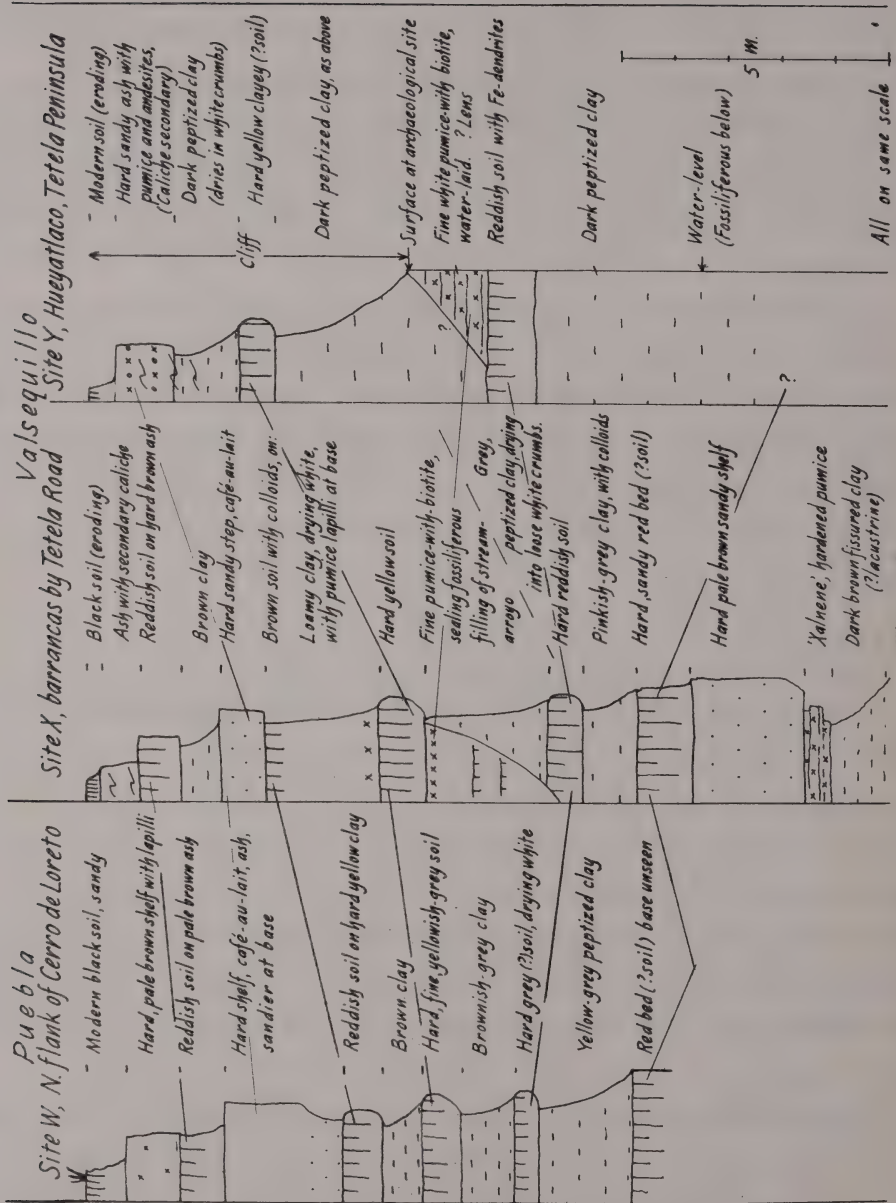 Puebla
Site W, N. flank of Cerro de Loreto
Modern black soil, sandy
Hard, pale brown shelf with lapilli
Reddish soil on pale brown ash
Hard shelf, café-au-lait, ash,
sandier at base
Reddish soil on hard yellow clay
Brown clay
Hard, fine, yellowish-grey soil
Brownish-grey clay
Hard grey (?)soil, drying white
Yellow-grey peptized clay
Red bed (?soil) base unseen
Valsequillo
Site X, barrancas by Tetela Road
Black soil (eroding)
Ash with secondary caliche
Reddish soil on hard brown ash
Brown clay
Hard sandy step, café-au-lait
Brown soil with colloids, on:
Loamy clay, drying white,
with pumice lapilli at base
Hard yellow soil
Fine pumice-with-biotite,
sealing fossiliferous
filling of stream-
arroyo
Grey,
peptized clay, drying
into loose white crumbs.
Hard reddish soil
Pinkish-grey clay, with colloids
Hard, sandy red bed (?soil)
Hard pale brown sandy shelf
?
'Xalnene', hardened pumice
Dark brown fissured clay
(?lacustrine)
Site Y, Hueyatlaco, Tetela Peninsula
Modern soil (eroding)
Hard sandy ash with
pumice and andesites,
(Caliche secondary)
Dark peptized clay
(dries in white crumbs)
Hard yellow clayey (?soil)
Cliff
Dark peptized clay, as above
Surface at archaeological site
?
Fine white pumice-with biotite,
water-laid. ? Lens
Reddish soil with Fe-dendrites
Dark peptized clay
Water-level
(Fossiliferous below)
5 m.
All on same scale